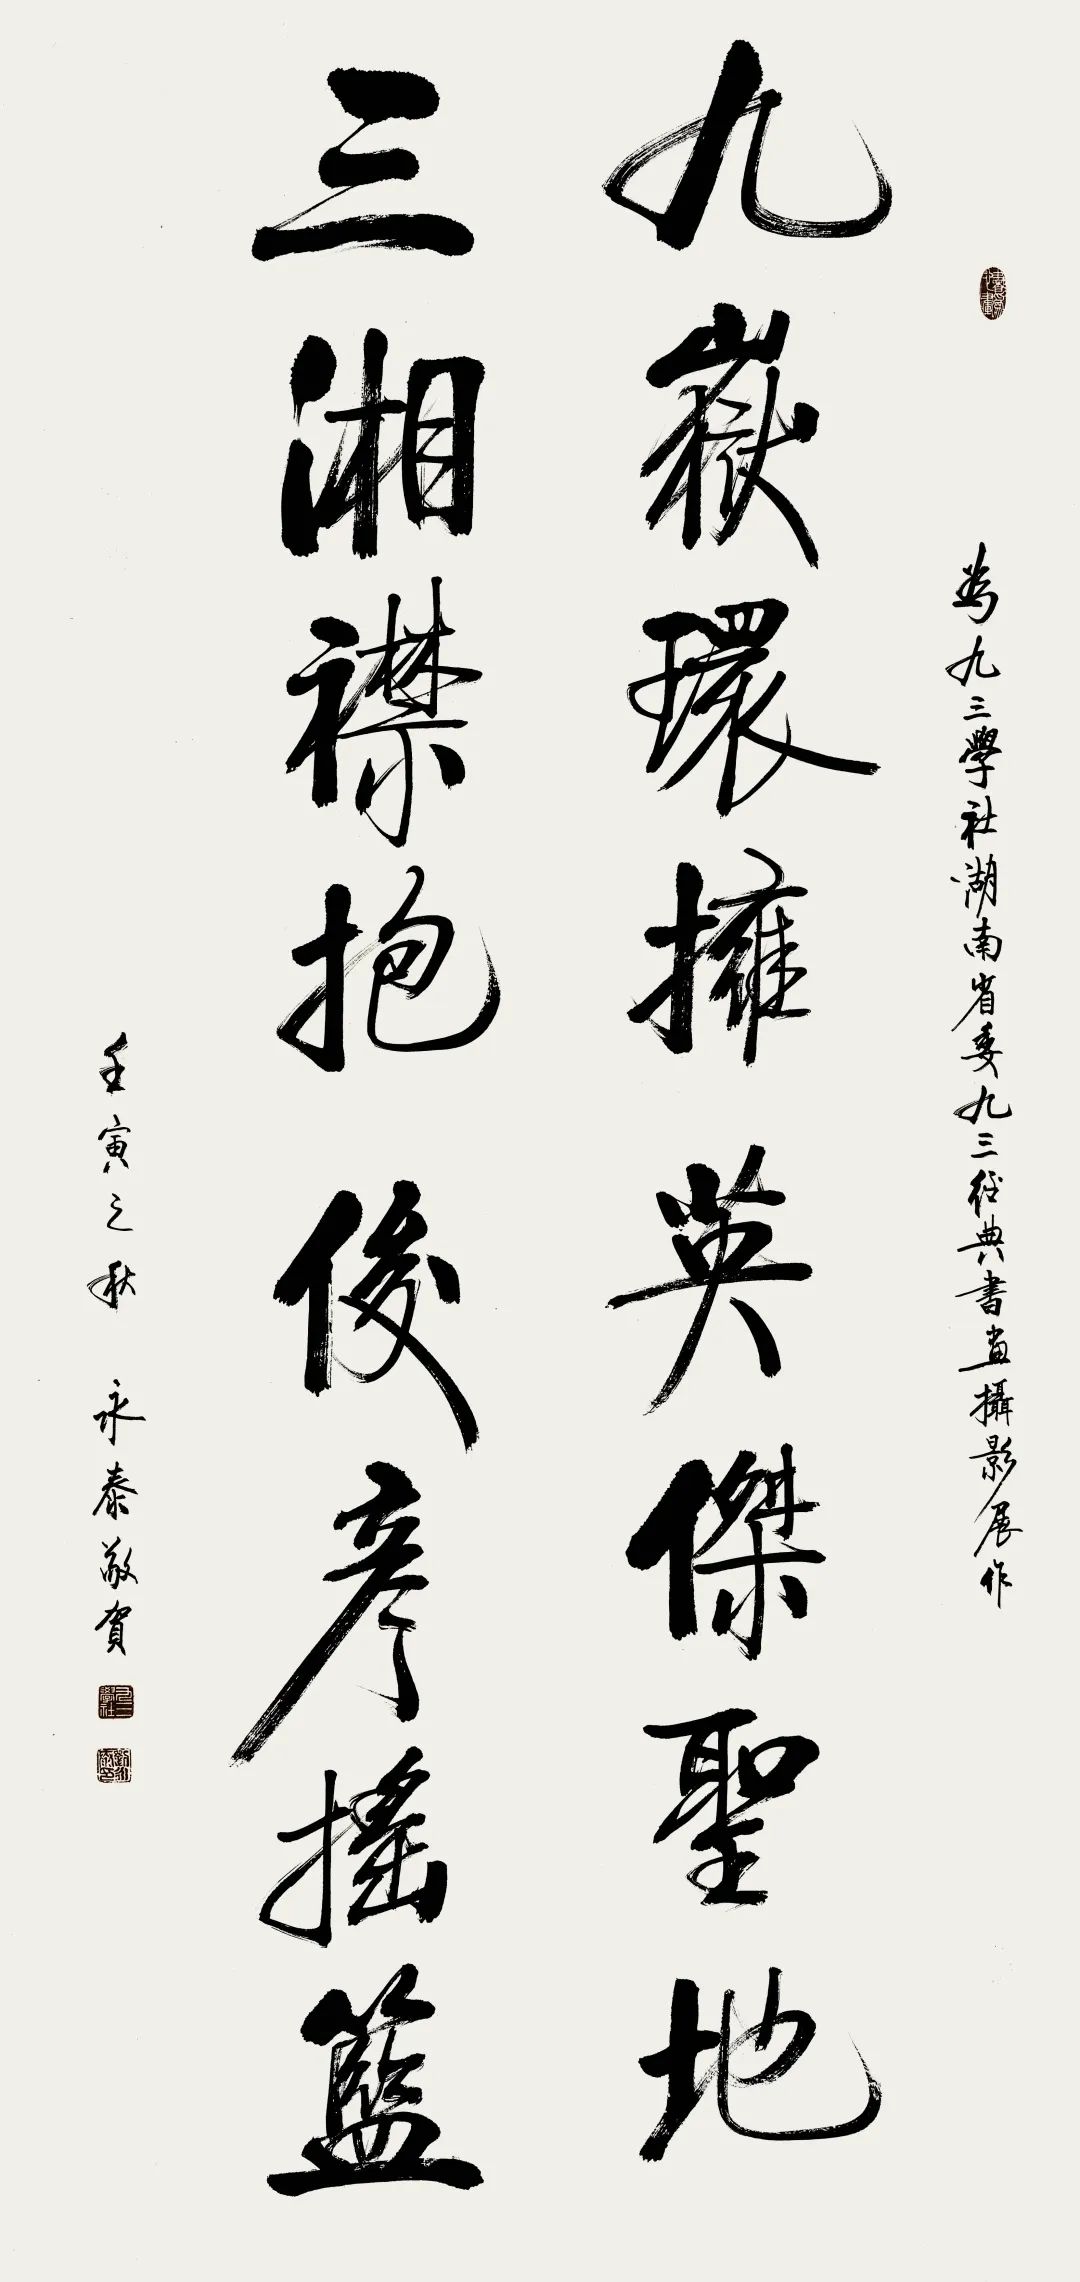 為九三學社湖南省委九三經典書畫攝影展作
九嶽環擁英傑聖地
三湘襟抱俊彥搖籃
壬寅之秋 永泰敬賀
九三學社